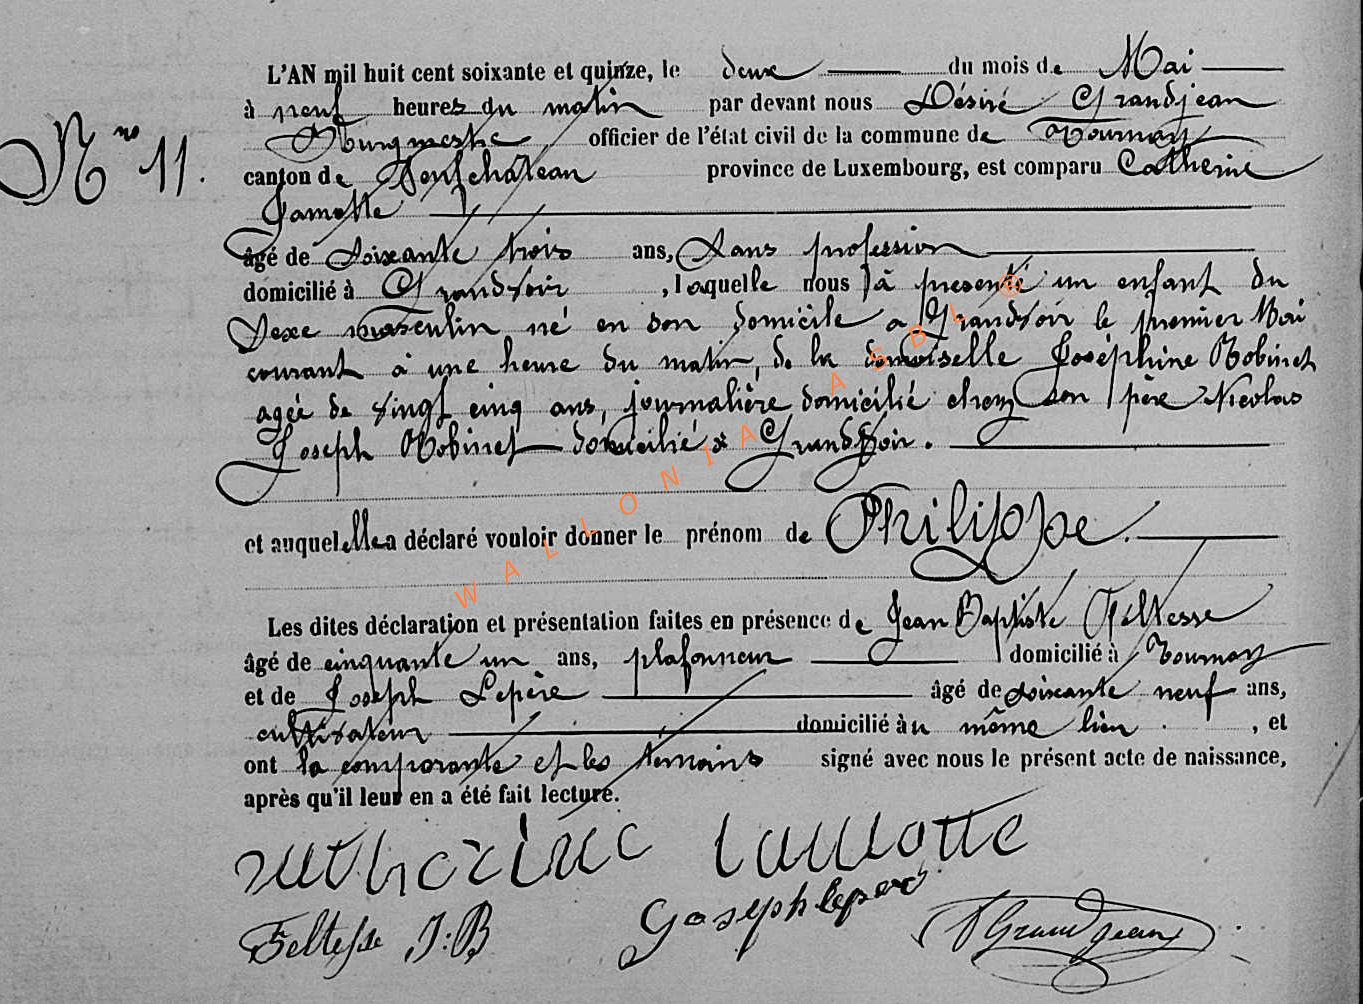 L'AN mil huit cent soixante et quinze, le deux du mois de Mai
à neuf heures du matin par devant nous Désiré Grandjean
Bourgmestre officier de l'état civil de la commune de Tournay
N° 11.
canton de Neufchâteau province de Luxembourg, est comparu Catherine
Lamotte
âgé de Soixante trois ans, Sans profession
domicilié à Grandvoir, laquelle nous a présenté un enfant du
Sexe masculin né en son domicile a Grandvoir le premier Mai
courant à une heure du matin, de la demoiselle Joséphine Robinet
agée de vingt cinq ans, journalière domicilié chez son père Nicolas
Joseph Robinet domicilié à Grandvoir.
et auquel elle a déclaré vouloir donner le prénom de Philippe.
Les dites déclaration et présentation faites en présence de Jean Baptiste Feltesse
âgé de cinquante un ans, plafonneur domicilié à Tournay
et de Joseph Lepère âgé de soixante neuf ans,
cultivateur domicilié au même lieu, et
ont la comparante et les témoins signé avec nous le présent acte de naissance,
après qu'il leur en a été fait lecture.
catherine lamotte
Feltesse J:B Joseph lepere D Grandjean
WALLONIA ASBL ®